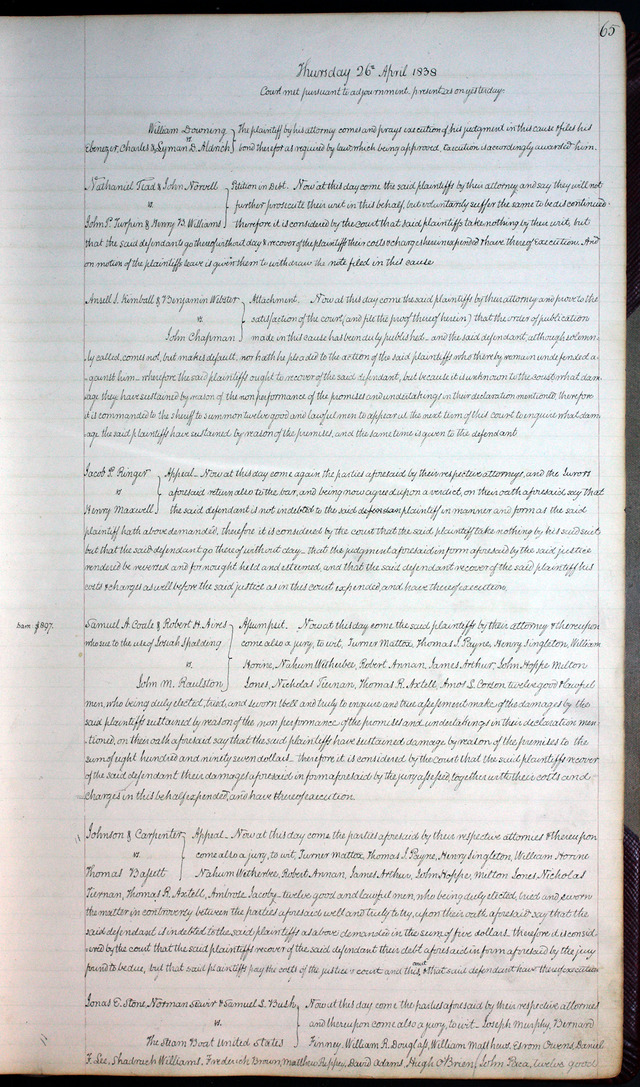 65
Thursday 26th April 1838
Court met pursuant to adjournment. present as on yesterday.
William Downing
vs
Ebenezer, Charles & Lyman D. Aldrich
The plaintiff by his attorney comes and prays execution of his judgment in this cause & files his
bond therefor as required by law which being approved, execution is accordingly awarded him.
Nathaniel Tiad & John Norvell
vs.
John P. Turpin & Henry B. Williams
Petition in Debt. Now at this day come the said plaintiffs by their attorney and say they will not
further prosecute their writ in this behalf, but voluntarily suffer the same to be discontinued.
therefore it is considered by the court that said plaintiffs take nothing by their writ, but
that the said defendants go thereof without day & recover of the plaintiffs their costs & charges herein expended & have thereof execution. And
on motion of the plaintiffs leave is given them to withdraw the note filed in this cause
Ansell S. Kimball & Benjamin Webster
vs.
John Chapman
Attachment. Now at this day come the said plaintiffs by their attorney and prove to the
satisfaction of the court, and file the proof thereof herein, that the order of publication
made in this cause has been duly published _ and the said defendant, although solemn-
ly called, comes not, but makes default, nor hath he pleaded to the action of the said plaintiffs who thereby remain undefended a-
gainst him _ wherefore the said plaintiffs ought to recover of the said defendant, but because it is unknown to the court what dam-
age they have sustained by reason of the non performance of the promises and undertakings in their declaration mentioned, therefore
it is commanded to the sheriff to summon twelve good and lawful men to appear at the next term of this court to enquire what dam-
age the said plaintiff have sustained by reason of the premises, and the same time is given to the defendant
Jacob P. Ringer
vs
Henry Maxwell
Appeal _ Now at this day come again the parties aforesaid by their respective attorneys, and the Jurors
aforesaid return also to the bar, and being now agreed upon a verdict, on their oath aforesaid say that
the said defendant is not indebted to the said defendan plaintiff in manner and form as the said
plaintiff hath above demanded. therefore it is considered by the court that the said plaintiff take nothing by his said suit
but that the said defendant go thereof without day _ that the judgment aforesaid in form aforesaid by the said justice
rendered be reversed and for nought held and esteemed, and that the said defendant recover of the said plaintiff his
costs & charges as well before the said justice as in this court expended, and have thereof execution.
Dam $897.
Samuel A. Coale & Robert H. Aires
who sue to the use of Josiah Spalding
vs.
John M. Raulston
Assumpsit. Now at this day come the said plaintiffs by their attorney & thereupon
come also a jury, to wit, Turner Mattox, Thomas J. Payne, Henry Singleton, William
Horine, Nahum Wetherbee, Robert Annan, James Arthur, John Hoppe, Milton
Jones, Nicholas Tiernan, Thomas R. Axtell, Amos L. Corson twelve good & lawful
men, who being duly elected, tried, and sworn well and truly to enquire and true assessment make of the damages by the
said plaintiffs sustained by reason of the non performance of the promises and undertakings in their declaration men-
tioned, on their oath aforesaid say that the said plaintiffs have sustained damage by reason of the premises to the
sum of eight hundred and ninety seven dollars. therefore it is considered by the court that the said plaintiffs recover
of the said defendant their damages aforesaid in form aforesaid by the jury assessed, together with their costs and
charges in this behalf expended, and have thereof execution.
Johnson & Carpenter
vs.
Thomas Bassett
Appeal _ Now at this day come the parties aforesaid by their respective attornies & thereupon
come also a jury, to wit, Turner Mattox, Thomas J. Payne, Henry Singleton, William Horine
Nahum Wetherbee, Robert Annan, James Arthur, John Hoppe, Milton Jones Nicholas
Tiernan, Thomas R. Axtell, Ambrose Jacoby _ twelve good and lawful men, who being duly elected, tried and sworn
the matter in controversy between the parties aforesaid well and truly to try, upon their oath aforesaid say that the
said defendant is indebted to the said plaintiffs as above demanded in the sum of five dollars. therefore it is consid-
ered by the court that the said plaintiffs recover of the said defendant their debt aforesaid in form aforesaid by the jury
found to be due, but that said plaintiffs pay the costs of the justice's court and this court & that said defendant have thereof execution
Jonas E. Stone, Norman & Samuel S. Bush
vs.
The Steam Boat United States
Now at this day come the parties aforesaid by their respective attornies
and thereupon come also a jury, to wit. Joseph Murphy, Bernard
Finney, William R. Douglass, William Matthews, Esrom Owens, Daniel
F. Lee, Shadrach Williams, Frederick Brown, Matthew Reppey, David Adams, Hugh O'Brien, John Paca, twelve good